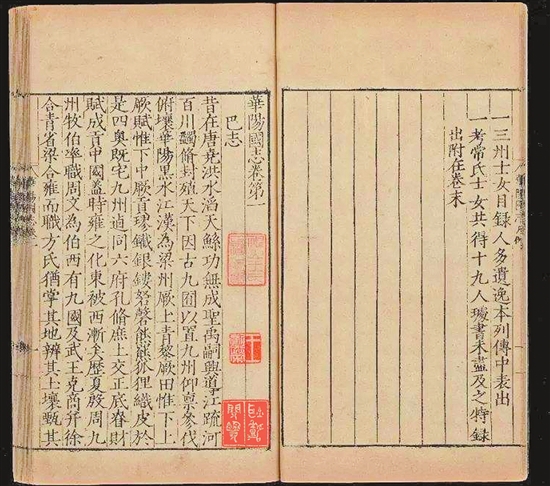 一三州士女目録人多遺逸本列傳中表出
一考常氏士女共得十九人璩書未盡及之特録
出附在卷末
華陽國志卷第一
巴志
昔在唐堯洪水滔天鯀功無成聖禹嗣興導江疏河
百川蠲脩封殖天下因古九囿以置九州仰禀參伐
俯壤華陽黑水江漢為梁州厥土青黎厥田惟下上
厥賦惟下中厥貢璆鐵銀鏤砮磬熊羆狐狸織皮於
是四奥既宅九州逌同六府孔脩庶土交正底眘財
賦成貢中國蓋時雍之化東被西漸矣歴夏殷周九
州牧伯率職周文為伯西有九國及武王克商并徐
合青省梁合雍而職方氏猶掌其地辨其土壤甄其